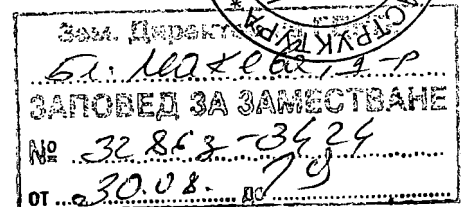 Зам. Директор
СТРУКТУРА
Бл. Макева, д-р
ЗАПОВЕД ЗА ЗАМЕСТВАНЕ
№ 32863-3424
от 30.08. до 19